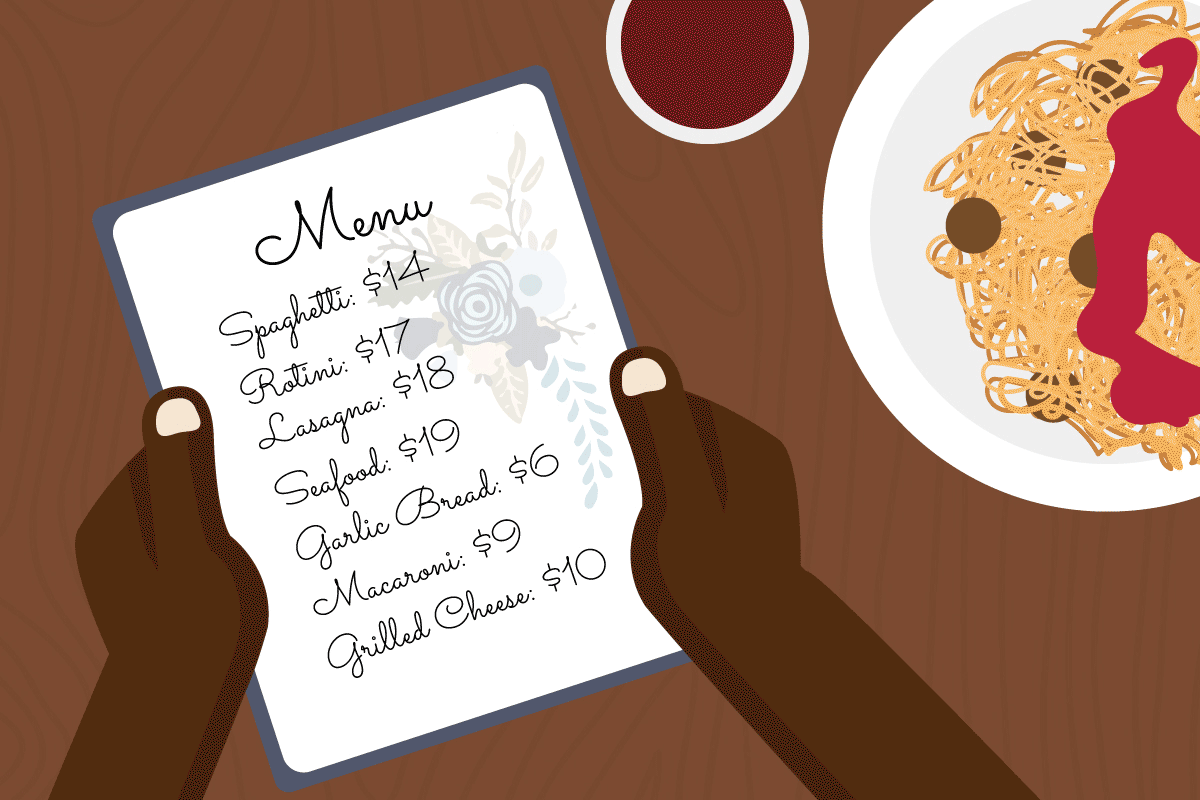 Menu
Spaghetti: $14
Rotini: $17
Lasagna: $18
Seafood: $19
Garlic Bread: $6
Macaroni: $9
Grilled Cheese: $10